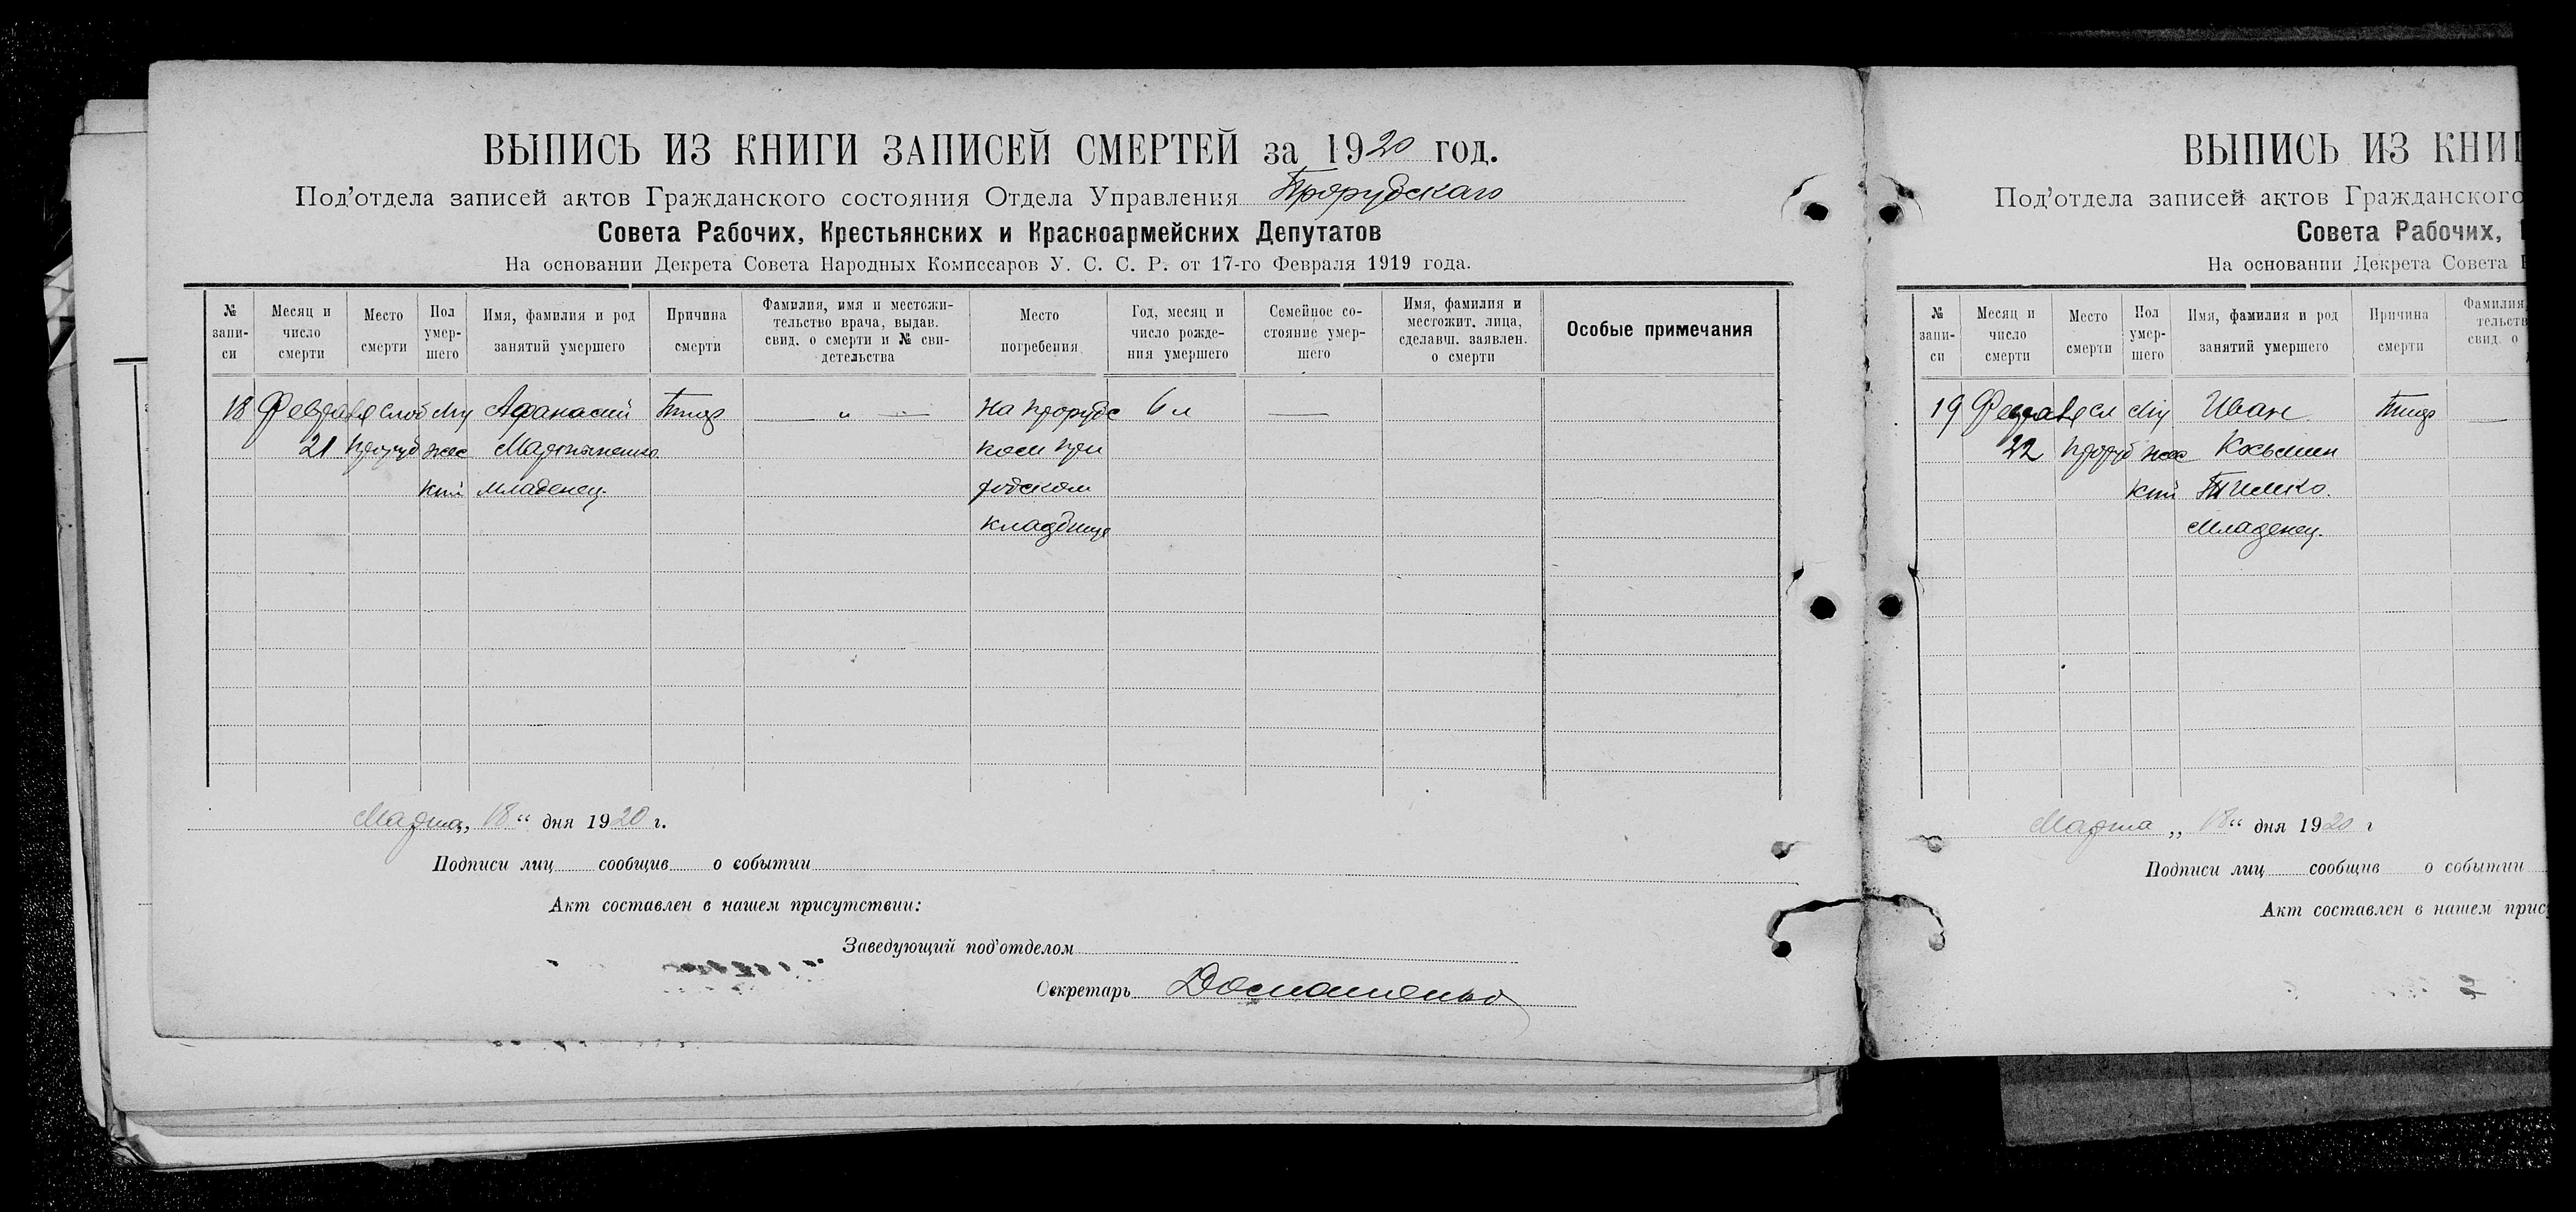 ВЫПИСЬ ИЗ КНИГИ ЗАПИСЕЙ СМЕРТЕЙ за 1920 год.
Под'отдела записей актов Гражданского состояния Отдела Управления Прорубскаго
Совета Рабочих, Крестьянских и Красноармейских Депутатов
На основании Декрета Совета Народных Комиссаров У. С. С. Р. от 17-го Февраля 1919 года.
№ запи- си
Месяц и число смерти
Место смерти
Пол умер- шего
Имя, фамилия и род занятий умершего
Причина смерти
Фамилия, имя и местожи- тельство врача, выдав. свид. о смерти и № сви- детельства
Место погребения
Год, месяц и число рожде- ния умершего
Семейное со- стояние умер- шего
Имя, фамилия и местожит. лица, сделавш. заявлен. о смерти
Особые примечания
18 Февраля слоб Му Афанасий Тиф — „ — На Прорубс 6 л —
21 Проруб жес Мартыненко ком при
кий младенец. ходском
кладбище
Марта „18“ дня 1920 г.
Подписи лиц сообщив о событии
Акт составлен в нашем присутствии:
Заведующий под'отделом
Секретарь Домашенко
ВЫПИСЬ ИЗ КНИГ
Под'отдела записей актов Гражданского
Совета Рабочих,
На основании Декрета Совета
№ запи- си
Месяц и число смерти
Место смерти
Пол умер- шего
Имя, фамилия и род занятий умершего
Причина смерти
Фамилия тельств свид. о
19 Февраля сл Му Иван Тиф —
22 Проруб жес Косьмин
кий Тимко.
Младенец.
Марта „18“ дня 1920 г
Подписи лиц сообщив о событии
Акт составлен в нашем прис